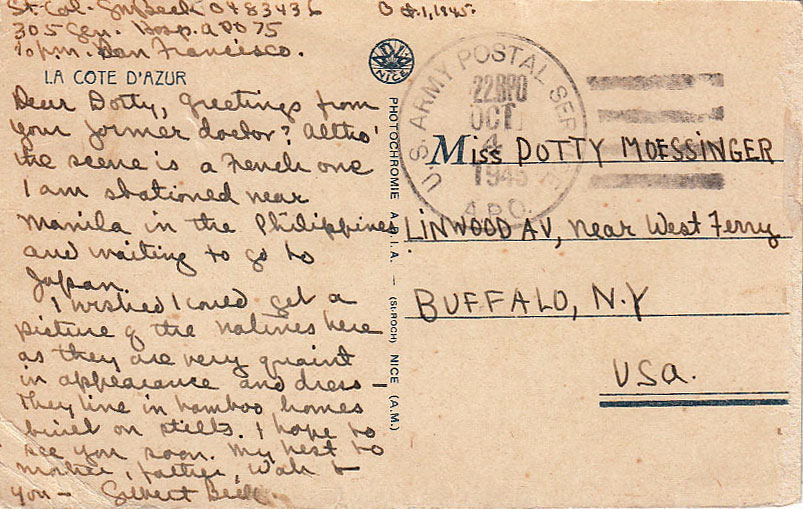 Lt. Col. G.M. Beck 0483436 Oct. 1, 1945.
305 Gen. Hosp. APO 75
% p.m. San Francisco.
LA COTE D'AZUR
Dear Dotty, Greetings from
your former doctor? Altho'
the scene is a French one
I am stationed near
Manila in the Philippines
and waiting to go to
Japan.
I wished I could get a
picture of the natives here
as they are very quaint
in appearance and dress –
They live in bamboo homes
built on stilts. I hope to
see you soon. My best to
mother, father, Walt &
you – Gilbert Beck.
ADIA
NICE
PHOTOCHROMIE A.D.I.A. — (St-ROCH) NICE (A.M.)
U.S. ARMY POSTAL SERVICE
A.P.O.
OCT
4
1945
Miss DOTTY MOESSINGER
LINWOOD AV, near West Ferry
BUFFALO, N.Y
USA.